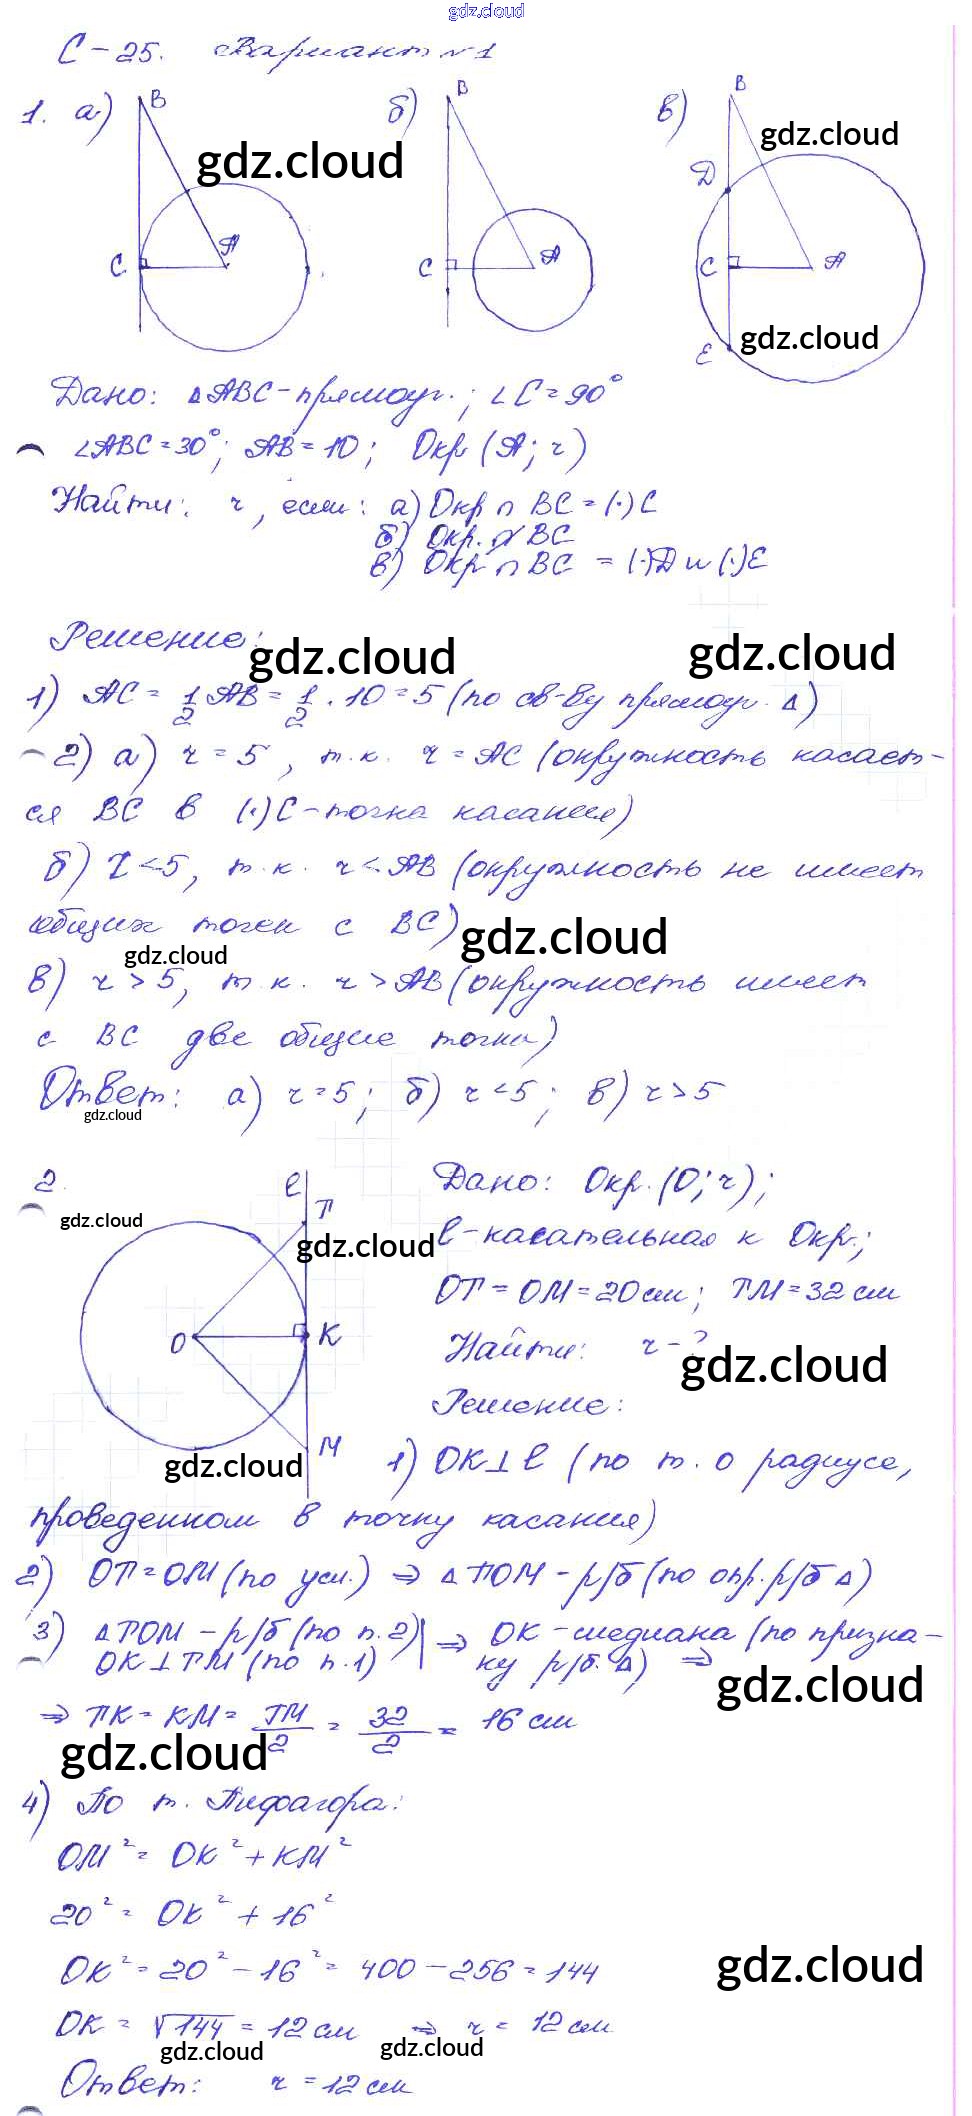 gdz.cloud
С-25. Вариант №1
1. а) B б) B в) B
gdz.cloud gdz.cloud
Д
C A C A C A
gdz.cloud
E
Дано: △ABC-прямоуг.; ∠C=90°
∠ABC=30°; AB=10; Окр(A; r)
Найти: r, если: а) Окр ∩ BC = (·)C
б) Окр. ∩̸ BC
в) Окр ∩ BC = (·)Д и (·)E
Решение:
gdz.cloud gdz.cloud
1) AC = 1/2 AB = 1/2 · 10 = 5 (по св-ву прямоуг. △)
2) а) r = 5, т.к. r = AC (окружность касает-
ся BC в (·)C-точка касания)
б) r<5, т.к. r<AB (окружность не имеет
общих точек с BC)
gdz.cloud gdz.cloud
в) r>5, т.к. r>AB (окружность имеет
с BC две общие точки)
Ответ: а) r=5; б) r<5; в) r>5
gdz.cloud
2. ℓ Дано: Окр.(O; r);
П
gdz.cloud gdz.cloud
ℓ-касательная к Окр.;
OП = OM = 20 см; ПM = 32 см
O K Найти: r-?
gdz.cloud
Решение:
M 1) OK⊥ℓ (по т. о радиусе,
gdz.cloud
проведенном в точку касания)
2) OП=OM (по усл.) ⇒ △ПOM - р/б (по опр. р/б △)
3) △ПOM - р/б (по п.2) | ⇒ OK-медиана (по призна-
OK⊥ПM (по п.1) ку р/б. △) ⇒
gdz.cloud
⇒ ПK = KM = ПM/2 = 32/2 = 16 см
gdz.cloud
4) По т. Пифагора:
OM² = OK² + KM²
20² = OK² + 16²
OK² = 20² - 16² = 400 - 256 = 144
gdz.cloud
OK = √144 = 12 см ⇒ r = 12 см
gdz.cloud gdz.cloud
Ответ: r = 12 см